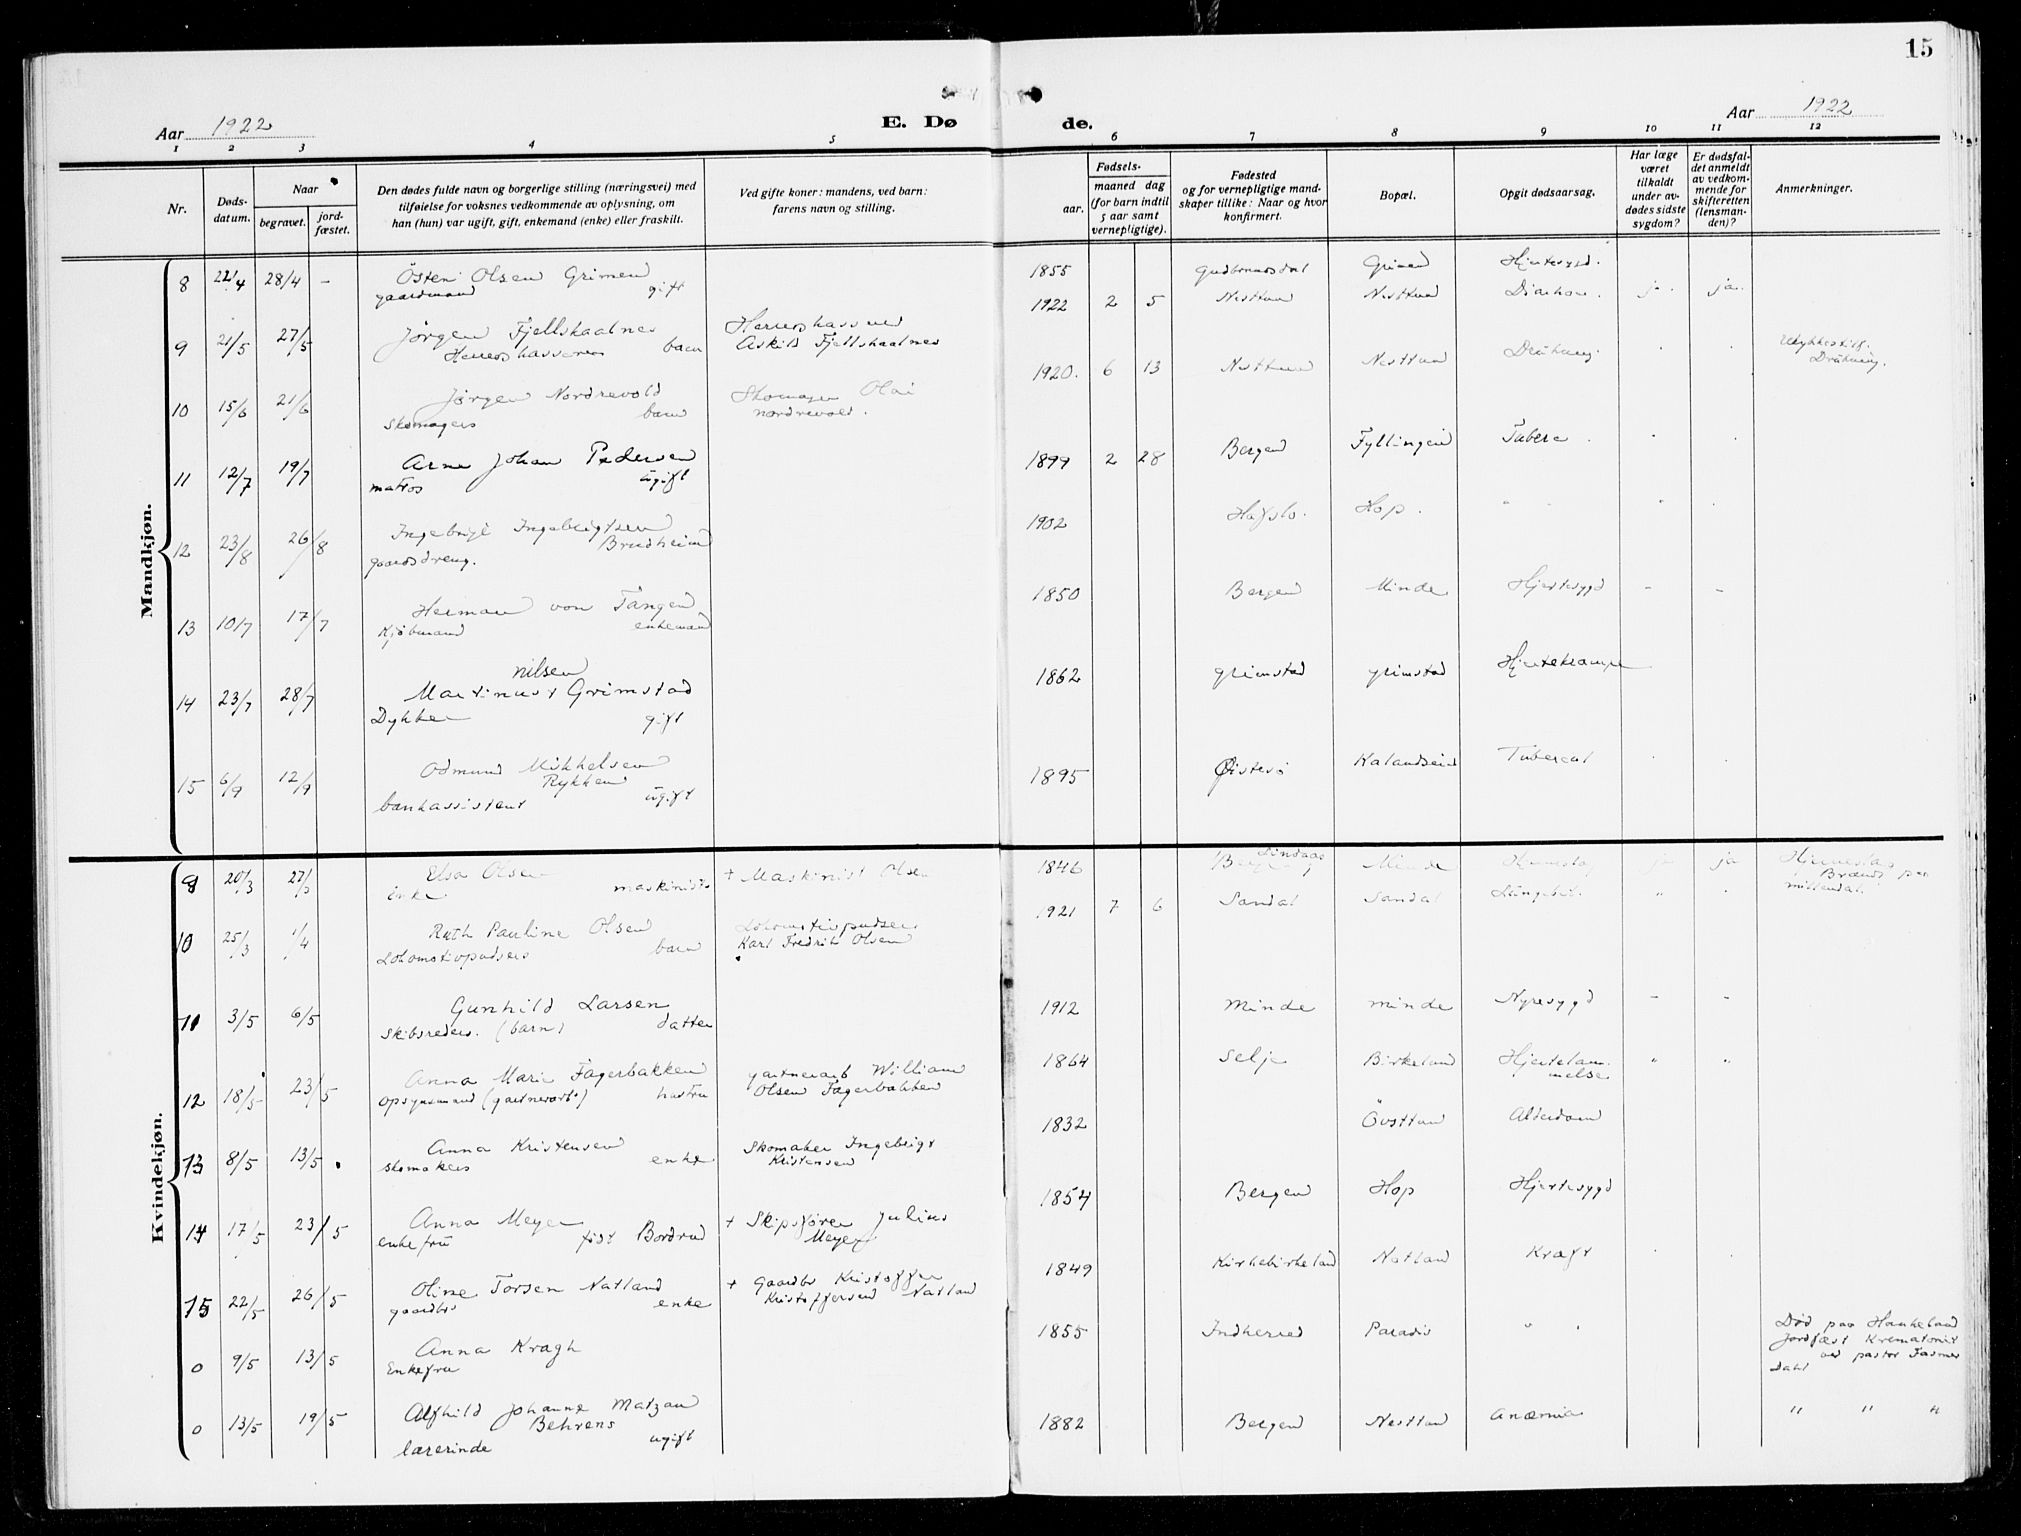 15
Aar 1922
E. Dø
de.
Aar 1922
1 2 3 4 5 6 7 8 9 10 11 12
Nr.
Døds-
datum.
Naar
begravet.
jord-
fæstet.
Den dødes fulde navn og borgerlige stilling (næringsvei) med
tilføielse for voksnes vedkommende av oplysning, om
han (hun) var ugift, gift, enkemand (enke) eller fraskilt.
Ved gifte koner: mandens, ved barn:
farens navn og stilling.
Fødsels-
aar.
maaned dag
(for barn indtil
5 aar samt
vernepligtige).
Fødested
og for vernepligtige mand-
skaper tillike: Naar og hvor
konfirmert.
Bopæl.
Opgit dødsaarsag.
Har læge
været
tilkaldt
under av-
dødes sidste
sygdom?
Er dødsfal-
det anmeldt
av vedkom-
mende for
skifteretten
(lensman-
den)?
Anmerkninger.
Mandkjøn.
8 22/4 28/4 - Østen Olsen Grimen 1855 Gudbransdal Grimen Hjertesygd.
gaardmand gift
1922 2 5 Nesttun Nesttun ja. ja.
9 21/5 27/5 Jørgen Fjellskaalnes
barn Askild Fjellskaalnes
1920. 6 13 Nesttun Nesttun Drukning. Ulykkestilf.
Drukning.
10 15/6 21/6 Jørgen Nordrevold Skomager Olai
Skomagers barn Nordrevold.
11 12/7 19/7 Arne Johan Pedersen 1899 2 28 Bergen Fyllingen
matros ugift
12 23/8 26/8 Ingebrigt Ingebrigtsen 1902 Hafslo. Hop. "
Brudheim
gaardsdreng.
13 10/7 17/7 Herman von Tangen 1850 Bergen Minde Hjertesygd - -
Kjøbmand enkemand
14 23/7 28/7 Nilsen
Martinus Grimstad 1862 Grimstad Grimstad Hjertekrampe
Dykker gift
15 6/9 12/9 Odmund Mikkelsen 1895 Øistesø Kalandseid Tubercul
Rykken
bankassistent ugift
Kvindekjøn.
9 20/3 27/3 Elsa Olsen + Maskinist Olsen 1846 Lindaas Minde ja ja
enke maskinists
10 25/3 1/4 Ruth Pauline Olsen Lokomotivpudser 1921 7 6 Sandal Sandal
Lokomotivpudsers barn Karl Fredrik Olsen
11 3/5 6/5 Gunhild Larsen 1912 Minde Minde Nyresygd - -
Skibsreders. (barn) datter
12 18/5 23/5 Anna Marie Fagerbakken gartnerarb William 1864 Selje Birkeland Hjertelam-
melse " "
opsynsmand (gartnerarb) hustru Olsen Fagerbakken
13 8/5 13/5 Anna Kristensen Skomaker Ingebrigt 1832 Øvsttun Alderdom
skomakers enke Kristensen
14 17/5 23/5 Anna Meyer + Skipsfører Julius 1854 Bergen Hop Hjertesygd
enkefru født Bordrud Meyer
15 22/5 26/5 Oline Torsen Natland + Gaardbr Kristoffer 1849 Kirkebirkeland Natland Kræft
gaardbr enke Kristoffersen Natland
0 9/5 13/5 Anna Kragh 1855 Indherred Paradis " Død paa Haukeland
Enkefru Jordfæst Krematoriet
ved pastor Fasmer
Dahl
0 13/5 19/5 Alfhild Johanne Matzau 1882 Bergen Nesttun Anæmia " " "
Behrens
lærerinde ugift